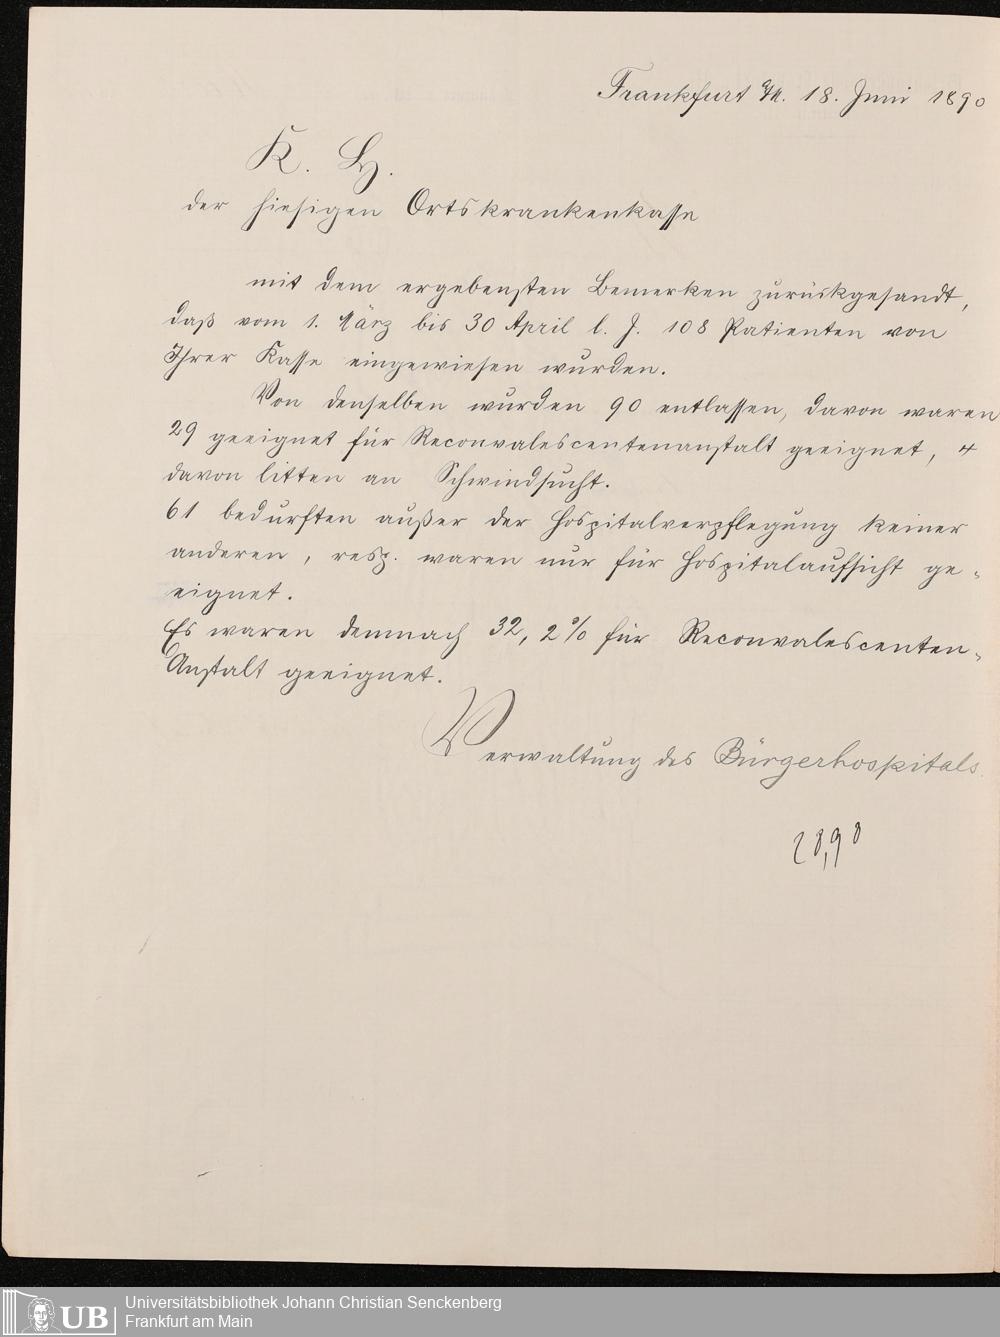 Frankfurt a/M. 18. Juni 1890
K. H.
der hiesigen Ortskrankenkasse
mit dem ergebensten Bemerken zurückgesandt,
daß vom 1. März bis 30 April l. J. 108 Patienten von
Ihrer Kasse eingewiesen wurden.
Von denselben wurden 90 entlassen, davon waren
29 geeignet für Reconvalescentenanstalt geeignet, 4
davon litten an Schwindsucht.
61 bedurften außer der Hospitalverpflegung keiner
anderen, resp. waren nur für Hospitalaufsicht ge-
eignet.
Es waren demnach 32,2% für Reconvalescenten-
Anstalt geeignet.
Verwaltung des Bürgerhospitals.
28,98
Universitätsbibliothek Johann Christian Senckenberg
Frankfurt am Main
UB